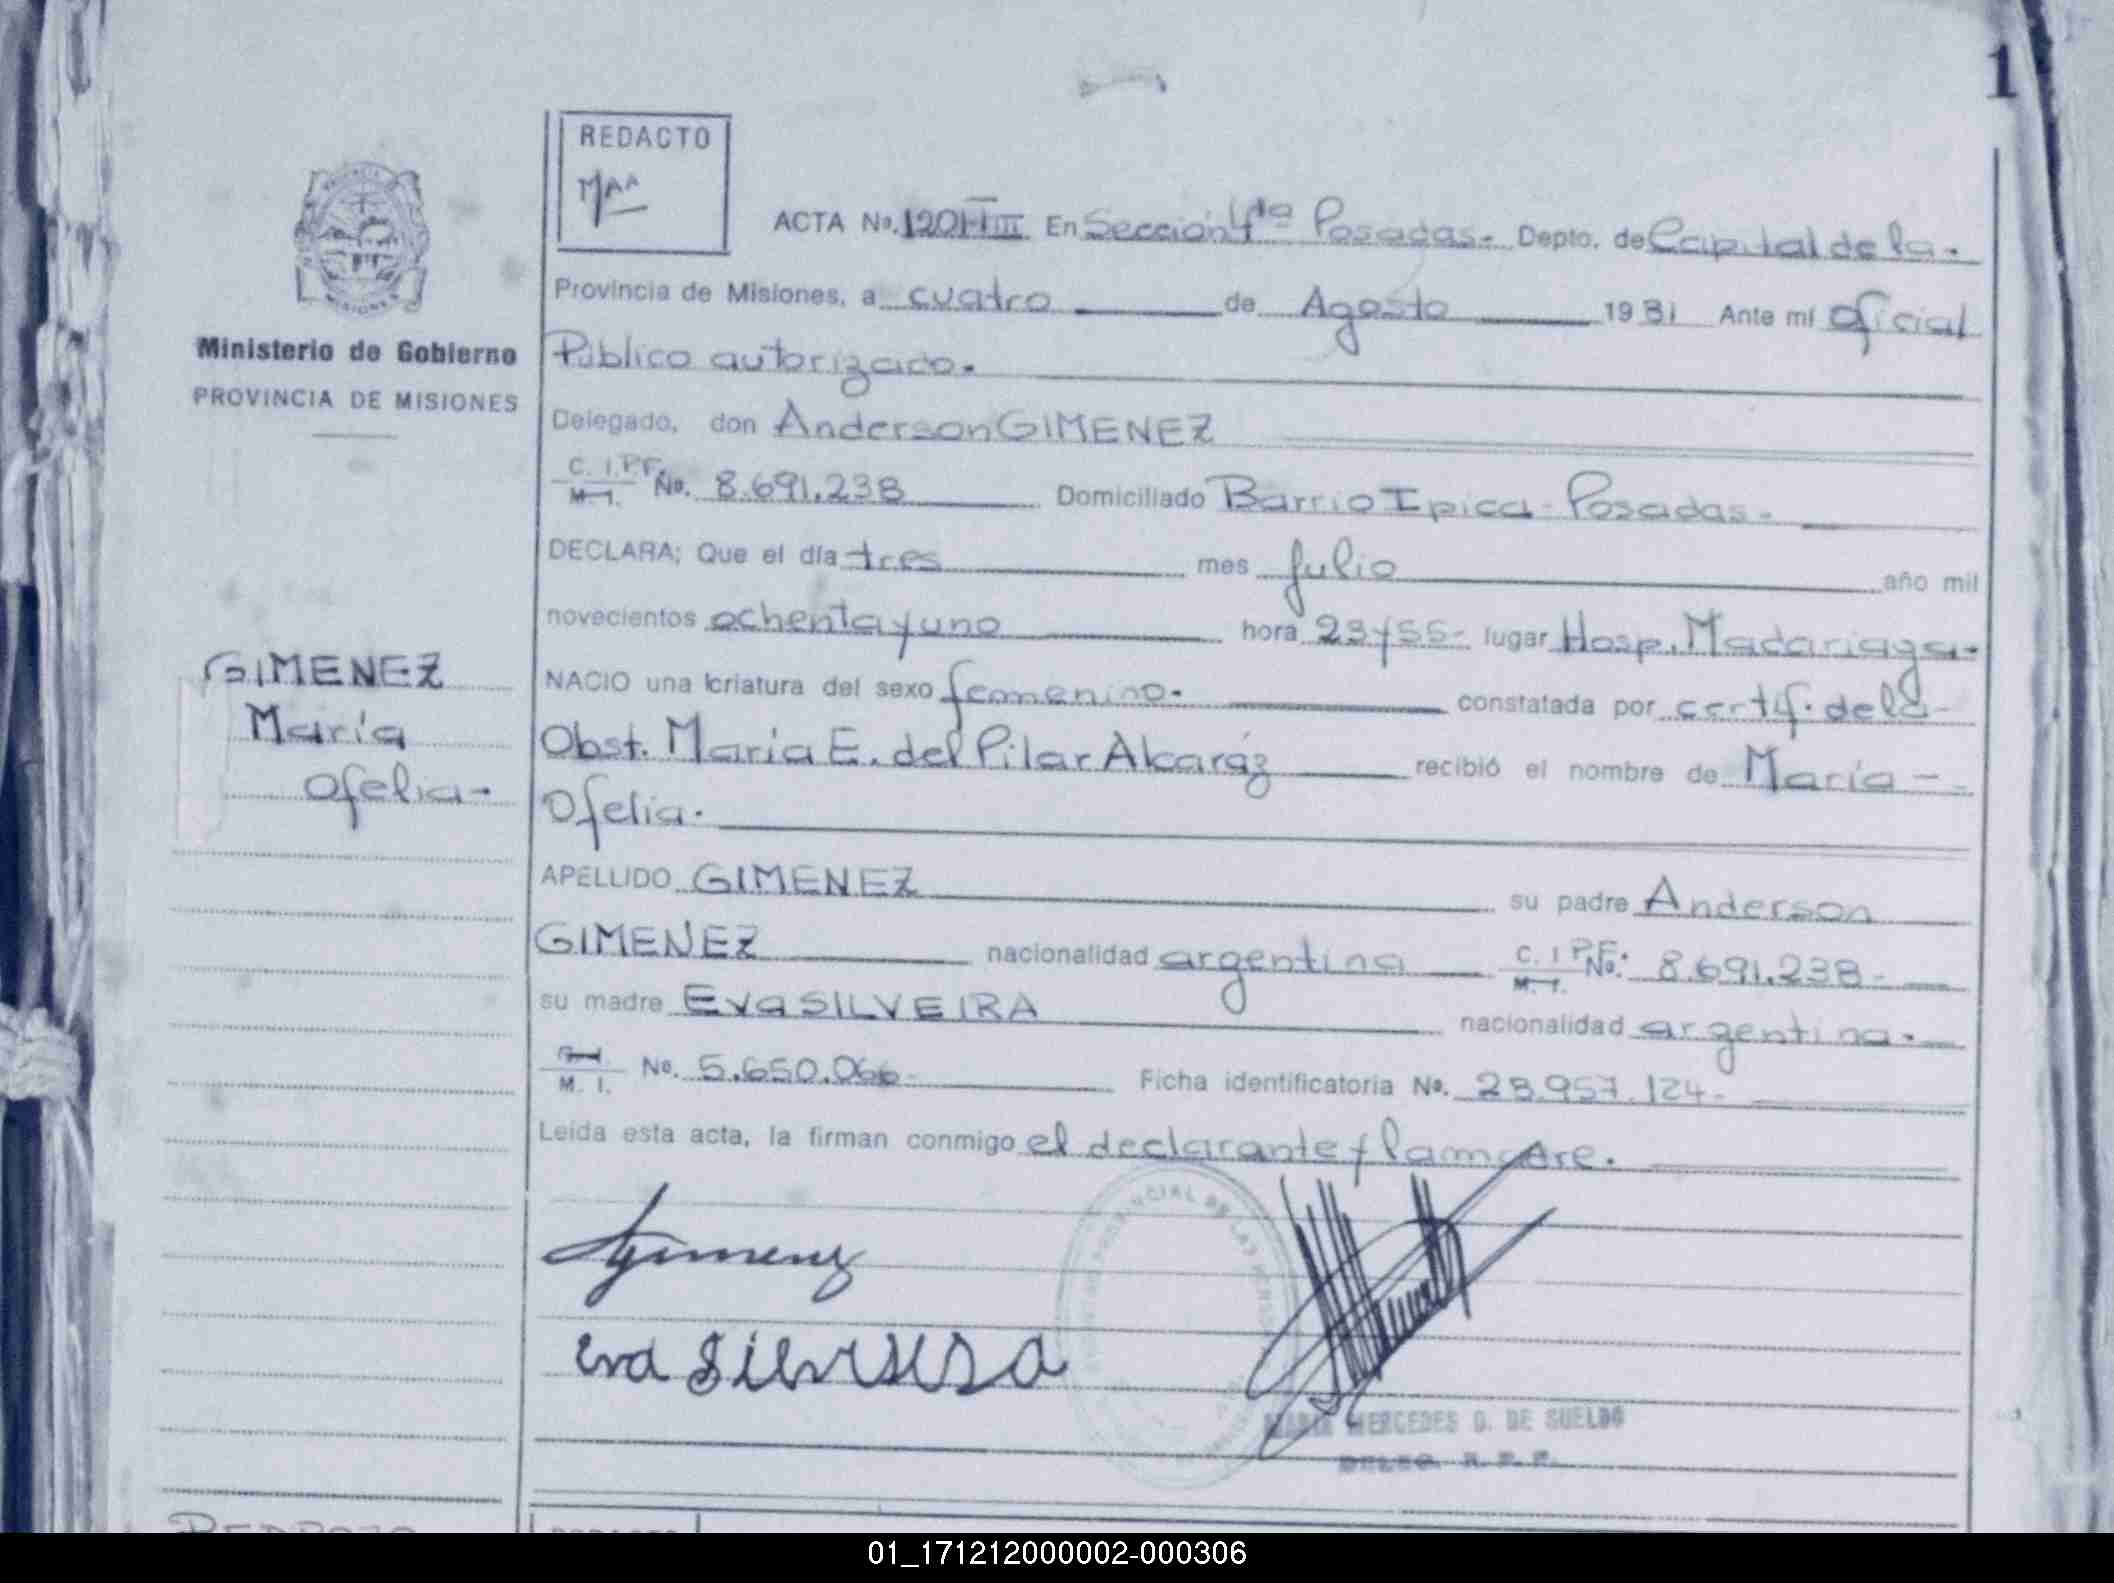 1
REDACTO
MAA
ACTA No. 1201-T-III En Sección 4ta Posadas.- Depto. de Capital de la.
Provincia de Misiones, a cuatro de Agosto 1981 Ante mí oficial
Ministerio de Gobierno
PROVINCIA DE MISIONES
Público autorizado.
Delegado, don Anderson GIMENEZ
C. I. P.F. M. I. No. 8.691.238 Domiciliado Barrio Ipica - Posadas.-
DECLARA; Que el día tres mes Julio año mil
novecientos ochenta y uno hora 23 y 55- lugar Hosp. Madariaga.
GIMENEZ
María
Ofelia.-
NACIO una criatura del sexo femenino.- constatada por certif. de la
Obst. María E. del Pilar Alcaráz recibió el nombre de María -
Ofelia.
APELLIDO GIMENEZ su padre Anderson
GIMENEZ nacionalidad argentina C. I P.F. M. I. No. 8.691.238-
su madre Eva SILVEIRA nacionalidad argentina.-
M. I. No. 5.650.066- Ficha identificatoria No. 28.957.124-
Leída esta acta, la firman conmigo el declarante y la madre.
AGimenez
Eva Silveira
MARIA MERCEDES D. DE SUELDO
DELEG. R. P. P.
01_171212000002-000306